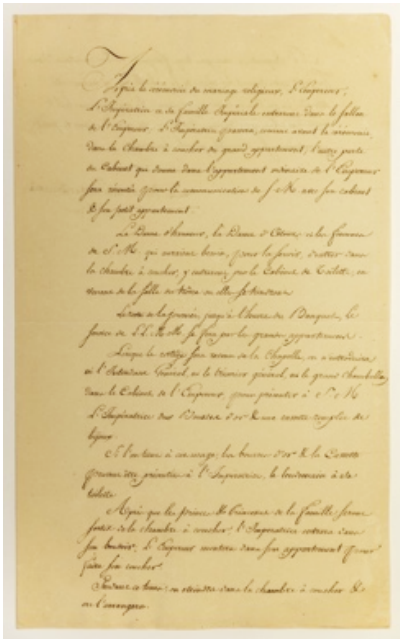 Après la cérémonie du mariage religieux, l'Empereur,
L'Impératrice et la famille Impériale rentrerons dans le Sallon
de l'Empereur. L'Impératrice passera, comme avant la cérémonie,
dans la Chambre à coucher du grand appartement, l'autre porte
du Cabinet qui donne dans l'appartement ordinaire de l'Empereur
sera réservée pour la communication de S. M. avec son cabinet
& son petit appartement.
La Dame d'honneur, la Dame d'Atour, et les femmes
de S. M. qui auraient besoin, pour la servir, d'entrer dans
la chambre à coucher, y entreront par le Cabinet de Toilette, en
venant de la Salle du trône où elles se tiendront.
Le reste de la journée, jusqu'à l'heure du Banquet, le
service de LL. MM. se fera par les grands appartements.
Lorsque le cortège sera revenu de la Chapelle, on introduira
l'Intendant Général, le trésorier général, le grand Chambellan
dans le Cabinet de l'Empereur pour présenter à S. M.
L'Impératrice des bourses d'or & une cassette remplie de
bijoux.
Si l'on tient à cet usage, les bourses d'or & la Cassette
peuvent être présentées à l'Impératrice, le lendemain à sa
toilette.
Après que les Princes & Princesses de la famille seront
sortis de la chambre à coucher, l'Impératrice entrera dans
son boudoir. L'Empereur montera dans son appartement pour
faire son coucher.
Pendant ce tems on éteindra dans la chambre à coucher &
on l'arrangera.